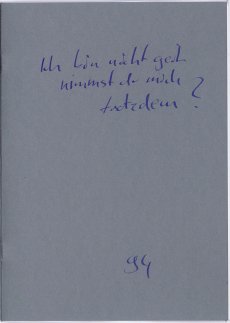 Ich bin nicht
nimmst du mich
trotzdem ?
94